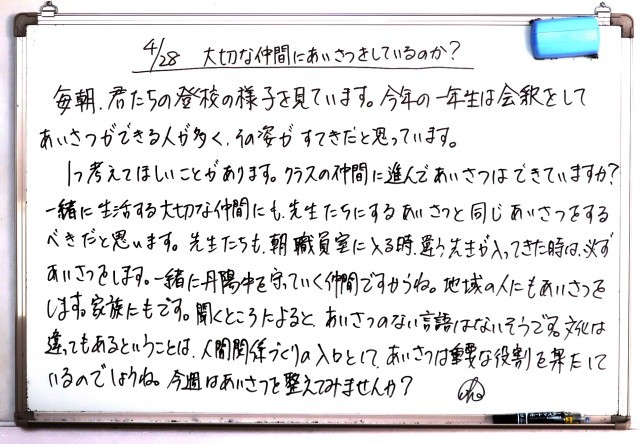 4/28 大切な仲間にあいさつをしているのか？
毎朝、君たちの登校の様子を見ています。今年の一年生は会釈をして
あいさつができる人が多く、その姿がすてきだと思っています。
1つ考えてほしいことがあります。クラスの仲間に進んであいさつはできていますか？
一緒に生活する大切な仲間にも、先生たちにするあいさつと同じあいさつをする
べきだと思います。先生たちも、朝職員室に入る時、違う先生が入ってきた時は、必ず
あいさつをします。一緒に丹陽中を守っていく仲間ですからね。地域の人にもあいさつを
します。家族にもです。聞くところによると、あいさつのない言語はないそうです。文化は
違ってもあるということは、人間関係づくりの入口として、あいさつは重要な役割を果たして
いるのでしょうね。今週はあいさつを整えてみませんか？